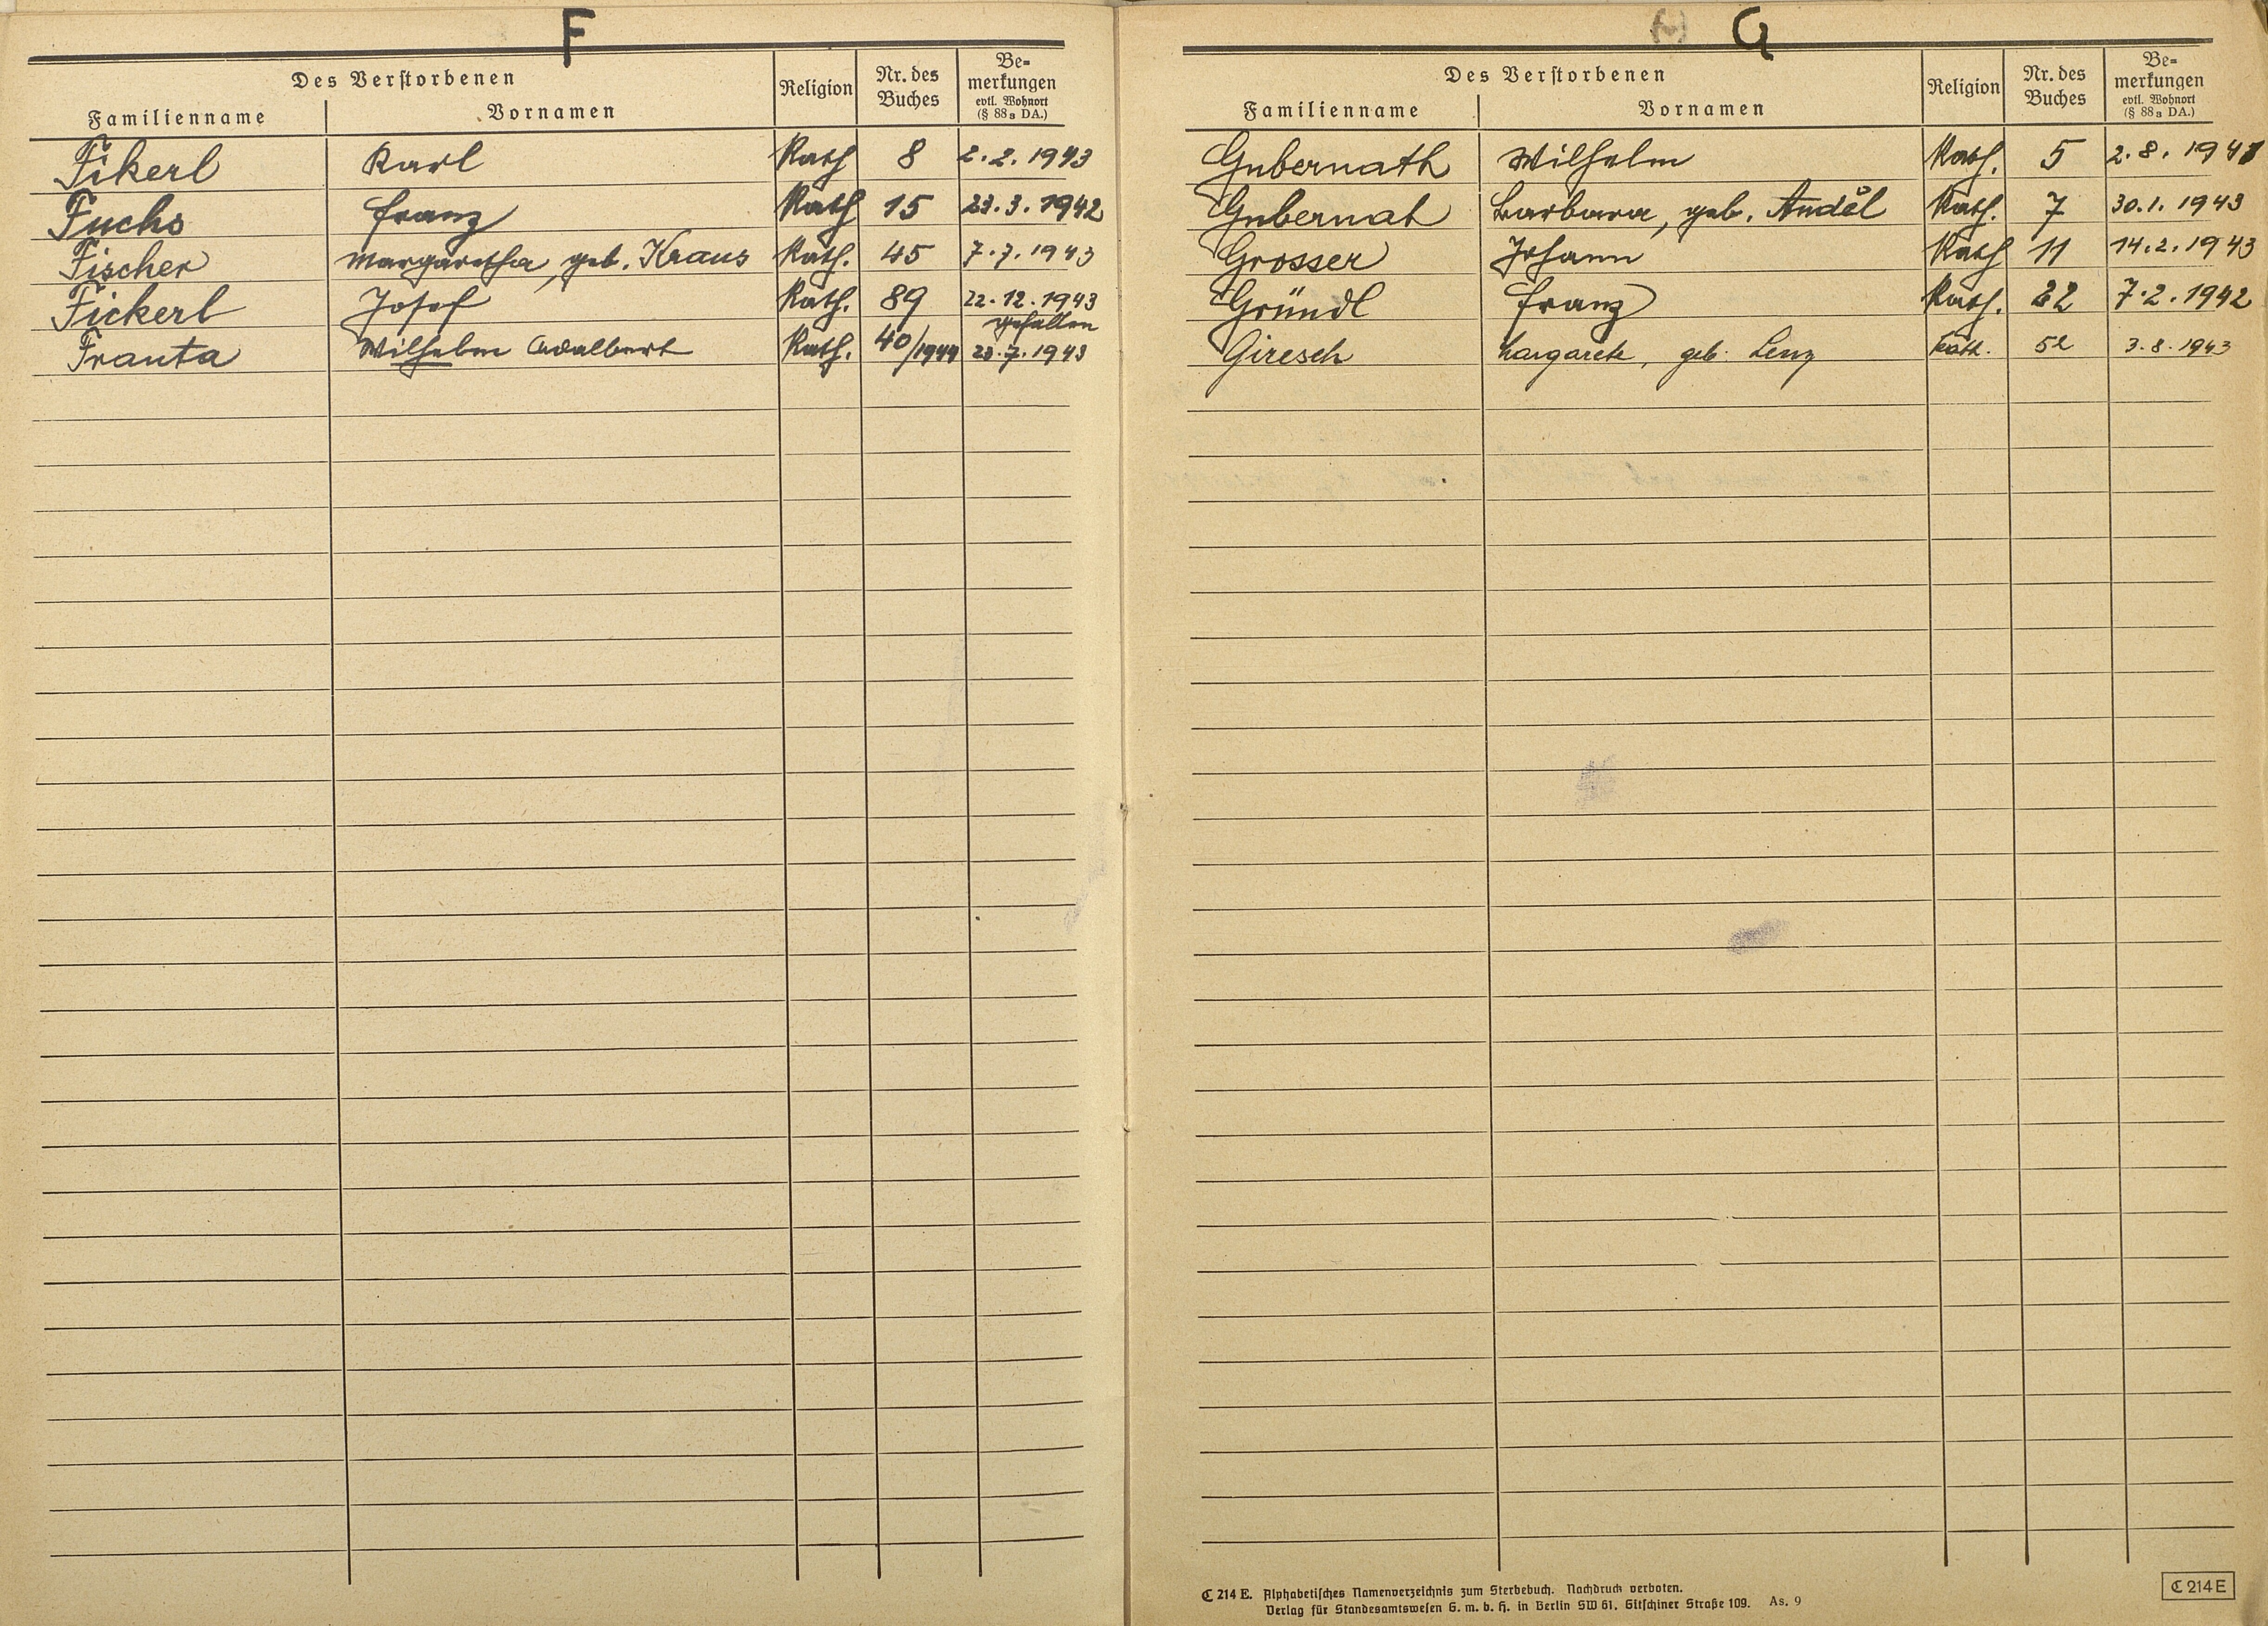 F
Des Verstorbenen
Familienname Vornamen Religion Nr. des Buches Be=merkungen evtl. Wohnort (§ 88a DA.)
Fikerl Karl Kath 8 2.2.1943
Fuchs Franz Kath 15 23.3.1942
Fischer Margaretha, geb. Kraus Kath. 45 7.7.1943
Fickerl Josef Kath. 89 22.12.1943
gefallen
Franta Wilhelm Adalbert Kath. 40/1944 23.7.1943
G
Des Verstorbenen
Familienname Vornamen Religion Nr. des Buches Be=merkungen evtl. Wohnort (§ 88a DA.)
Gubernath Wilhelm Kath. 5 2.8.1941
Gubernat Barbara, geb. Anděl Kath. 7 30.1.1943
Grosser Johann Kath 11 14.2.1943
Gründl Franz Kath. 22 7.2.1942
Giresch Margarete, geb. Lenz Kath. 52 3.8.1943
C 214 E. Alphabetisches Namenverzeichnis zum Sterbebuch. Nachdruck verboten.
Verlag für Standesamtswesen G. m. b. H. in Berlin SW 61, Gitschiner Straße 109. As. 9
C 214 E